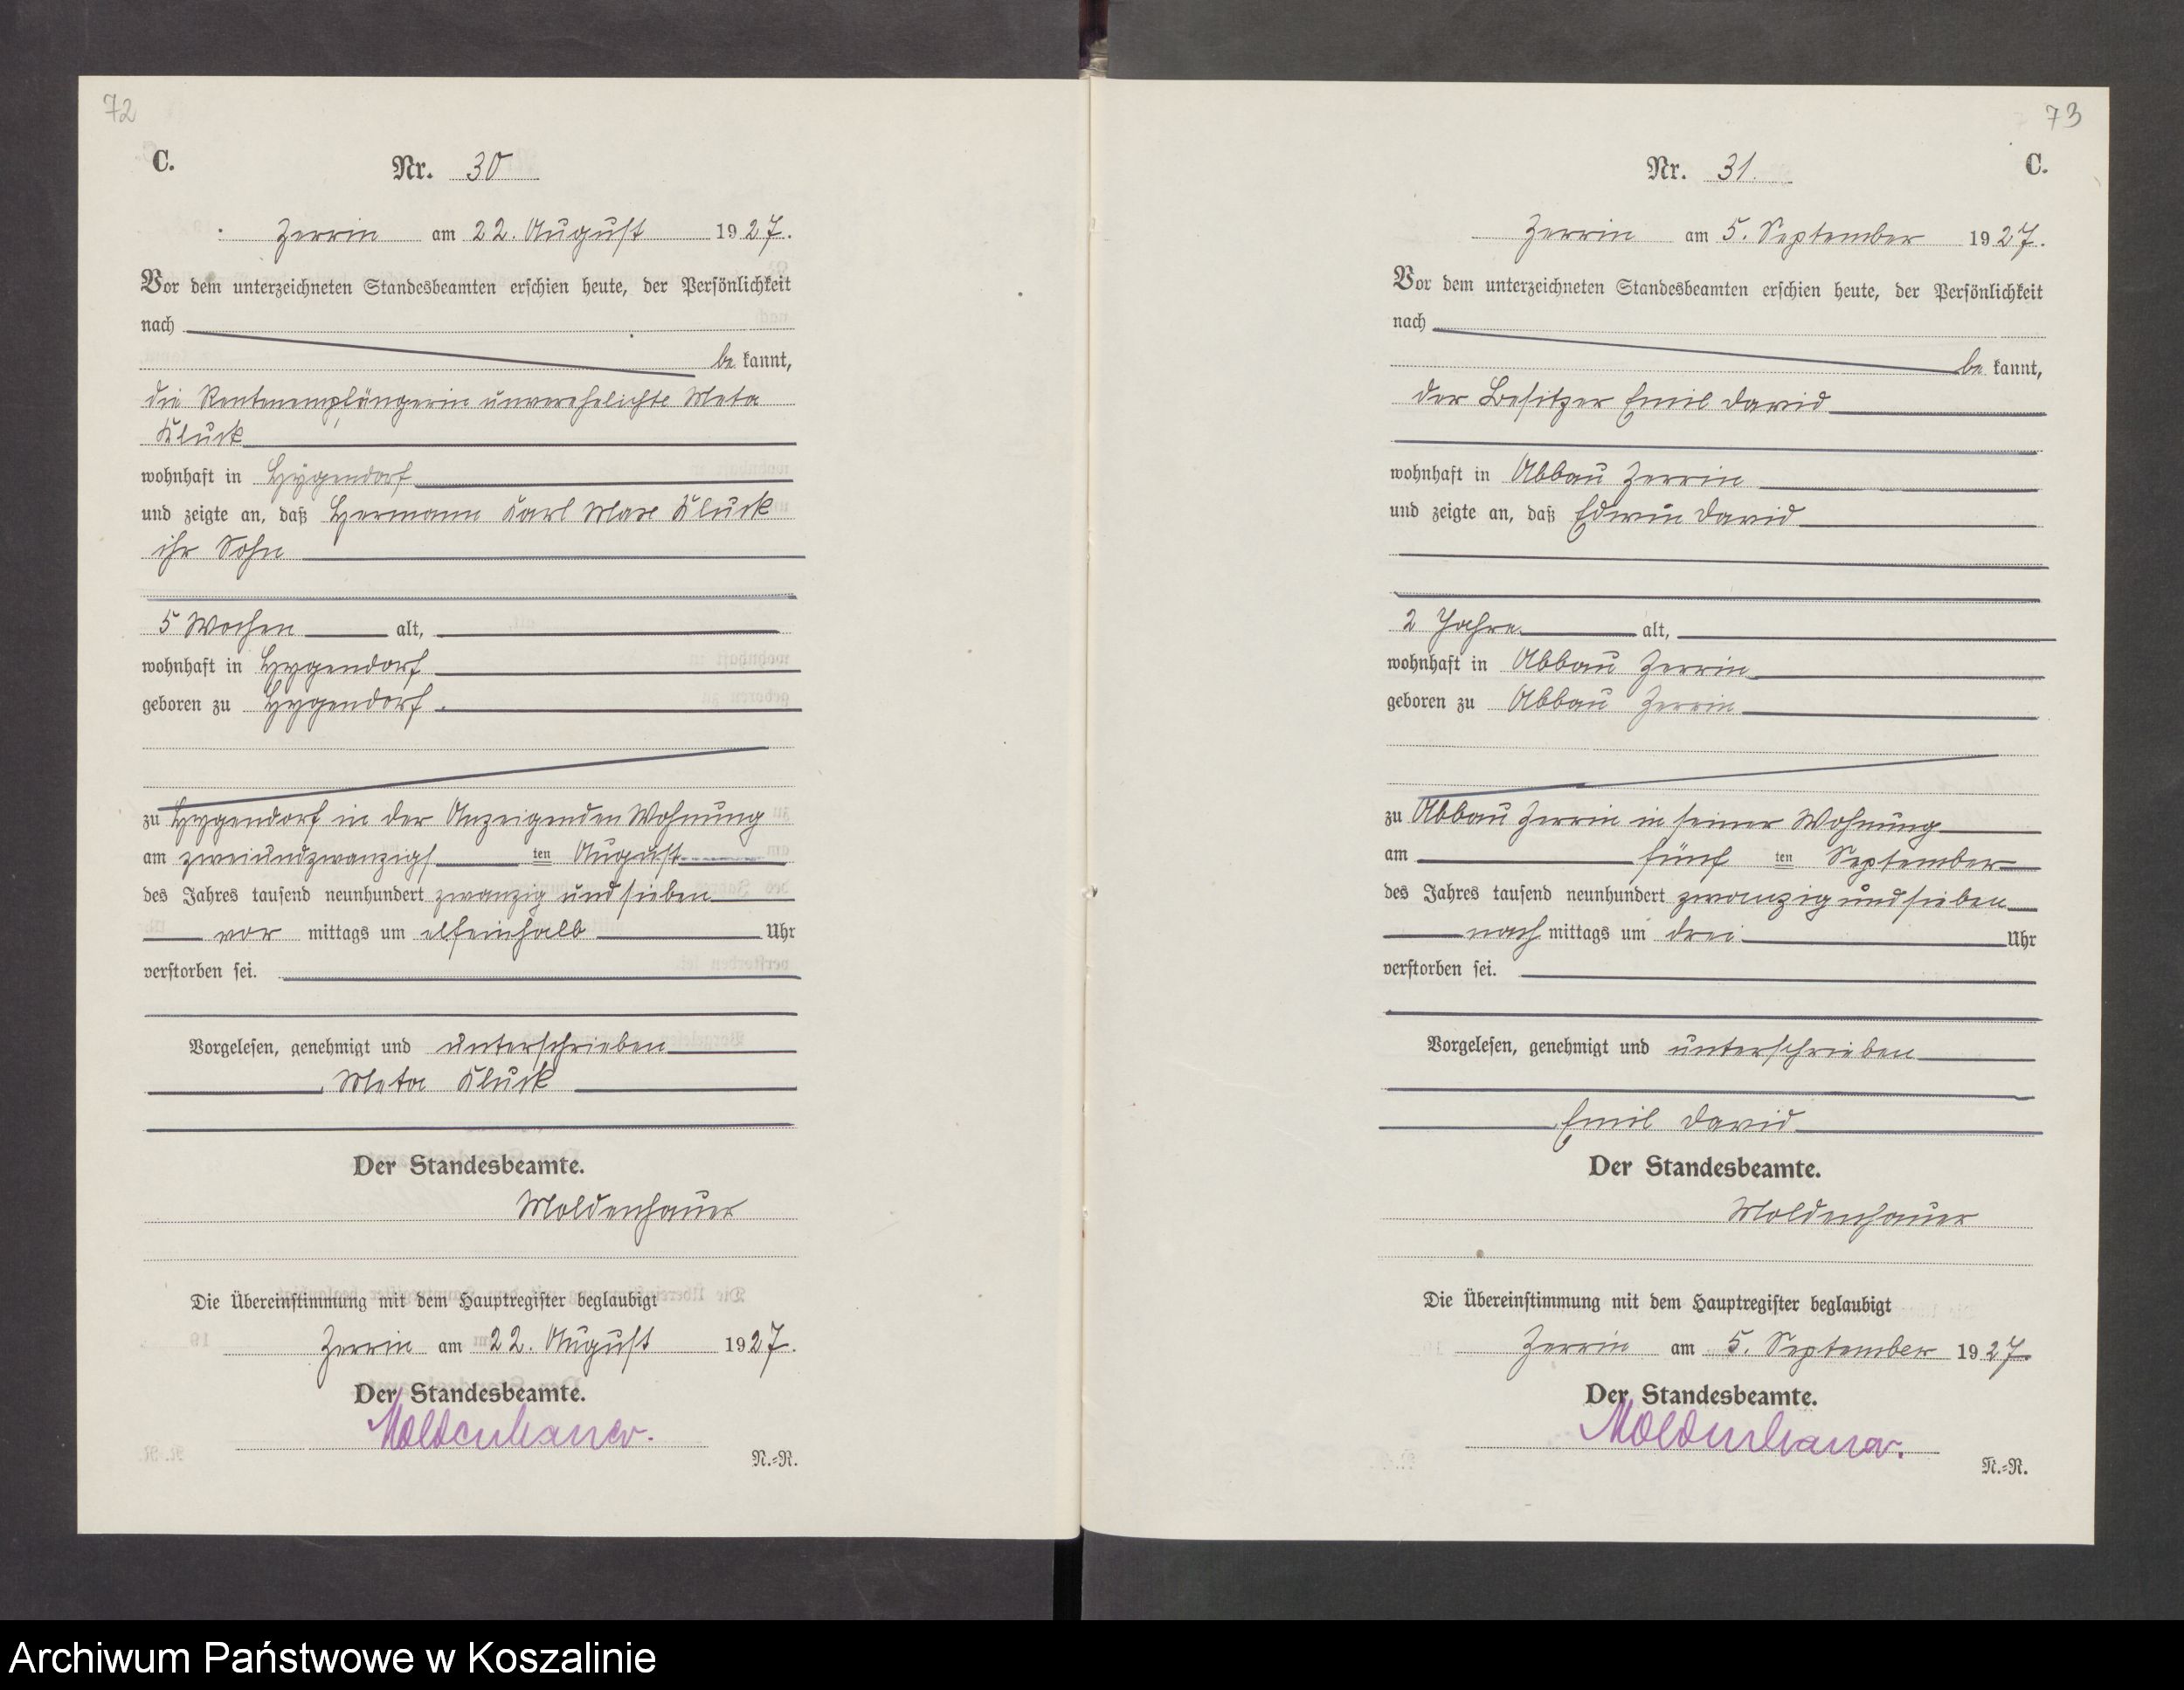 72
C.
Nr. 30
Zerrin am 22. August 1927.
Vor dem unterzeichneten Standesbeamten erschien heute, der Persönlichkeit
nach
be kannt,
die Rentenempfängerin unverehelichte Meta
Kluck
wohnhaft in Hygendorf
und zeigte an, daß Hermann Karl Max Kluck
ihr Sohn
5 Wochen alt,
wohnhaft in Hygendorf
geboren zu Hygendorf.
zu Hygendorf in der Anzeigenden Wohnung
am zweiundzwanzigs ten August
des Jahres tausend neunhundert zwanzig und sieben
vor mittags um elfeinhalb Uhr
verstorben sei.
Vorgelesen, genehmigt und unterschrieben
Meta Kluck
Der Standesbeamte.
Moldenhauer
Die Übereinstimmung mit dem Hauptregister beglaubigt
Zerrin am 22. August 1927.
Der Standesbeamte.
Moldenhauer.
N.=R.
73
C.
Nr. 31.
Zerrin am 5. September 1927.
Vor dem unterzeichneten Standesbeamten erschien heute, der Persönlichkeit
nach
be kannt,
der Besitzer Emil David
wohnhaft in Abbau Zerrin
und zeigte an, daß Edwin David
2 Jahre alt,
wohnhaft in Abbau Zerrin
geboren zu Abbau Zerrin
zu Abbau Zerrin in seiner Wohnung
am fünf ten September
des Jahres tausend neunhundert zwanzig und sieben
nach mittags um drei Uhr
verstorben sei.
Vorgelesen, genehmigt und unterschrieben
Emil David
Der Standesbeamte.
Moldenhauer
Die Übereinstimmung mit dem Hauptregister beglaubigt
Zerrin am 5. September 1927.
Der Standesbeamte.
Moldenhauer.
N.=R.
Archiwum Państwowe w Koszalinie